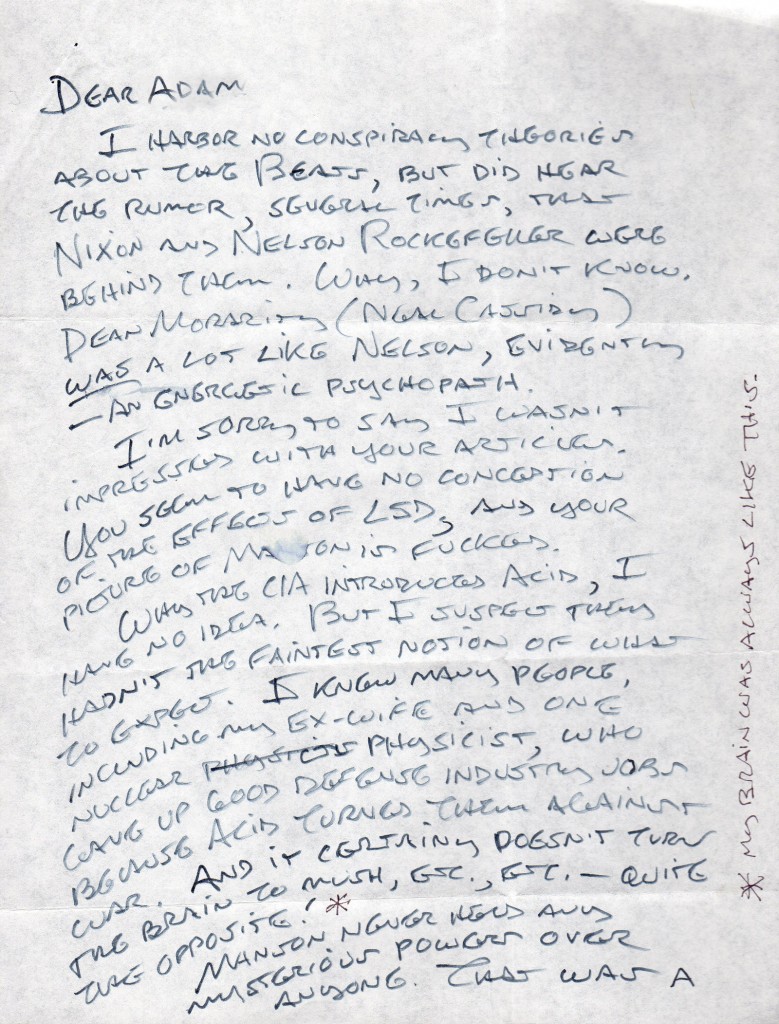 DEAR ADAM
I HARBOR NO CONSPIRACY THEORIES
ABOUT THE BEATS, BUT DID HEAR
THE RUMOR, SEVERAL TIMES, THAT
NIXON AND NELSON ROCKEFELLER WERE
BEHIND THEM. WHY, I DON'T KNOW.
DEAN MORARITY (NEAL CASSIDY)
WAS A LOT LIKE NELSON, EVIDENTLY
— AN ENERGETIC PSYCHOPATH.
I'M SORRY TO SAY I WASN'T
IMPRESSED WITH YOUR ARTICLES.
YOU SEEM TO HAVE NO CONCEPTION
OF THE EFFECTS OF LSD, AND YOUR
PICTURE OF MANSON IS FUCKED.
WHY THE CIA INTRODUCED ACID, I
HAVE NO IDEA. BUT I SUSPECT THEY
HADN'T THE FAINTEST NOTION OF WHAT
TO EXPECT. I KNEW MANY PEOPLE,
INCLUDING MY EX-WIFE AND ONE
NUCLEAR PHYSICIST, WHO
GAVE UP GOOD DEFENSE INDUSTRY JOBS
BECAUSE ACID TURNED THEM AGAINST
WAR. AND IT CERTAINLY DOESN'T TURN
THE BRAIN TO MUSH, ETC., ETC. — QUITE
THE OPPOSITE! *
MANSON NEVER HELD ANY
MYSTERIOUS POWERS OVER
ANYONE. THAT WAS A
* MY BRAIN WAS ALWAYS LIKE THIS.